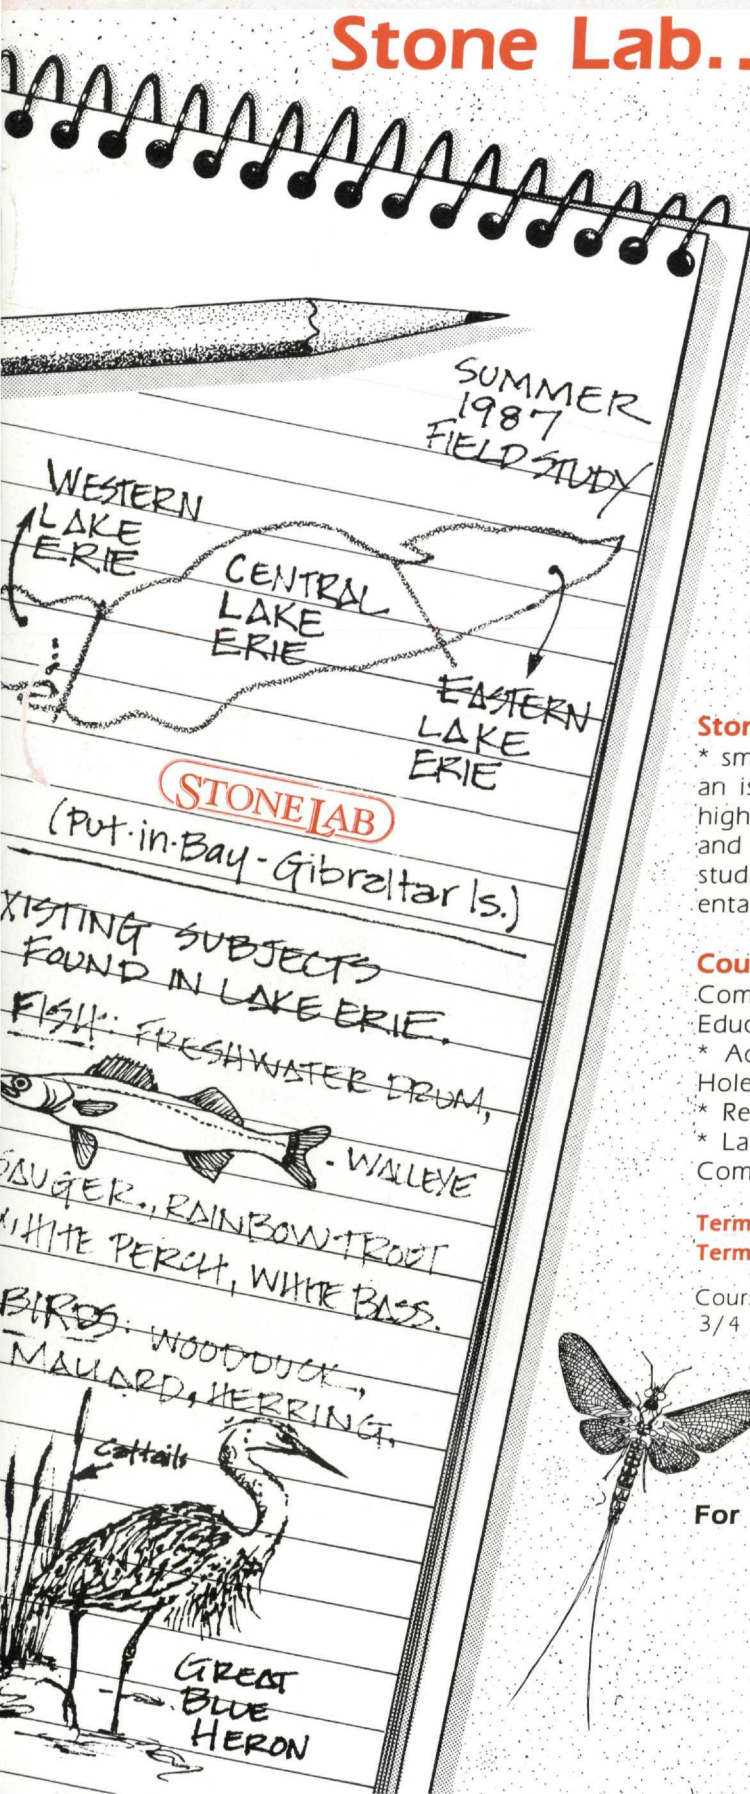 Stone Lab..
SUMMER
1987
FIELD STUDY
WESTERN
LAKE
ERIE
CENTRAL
LAKE
ERIE
EASTERN
LAKE
ERIE
STONE LAB
(Put-in-Bay - Gibraltar Is.)
XISTING SUBJECTS
FOUND IN LAKE ERIE.
FISH: FRESHWATER DRUM,
. WALLEYE
SAUGER., RAINBOW TROUT
WHITE PERCH, WHITE BASS.
BIRDS: WOODDUCK,
MALLARD, HERRING,
Cattails
GREAT
BLUE
HERON
Ston
* sm
an is
high
and
stud
enta
Cou
Com
Educ
* Ac
Hole
* Re
* La
Com
Term
Term
Cours
3/4
For